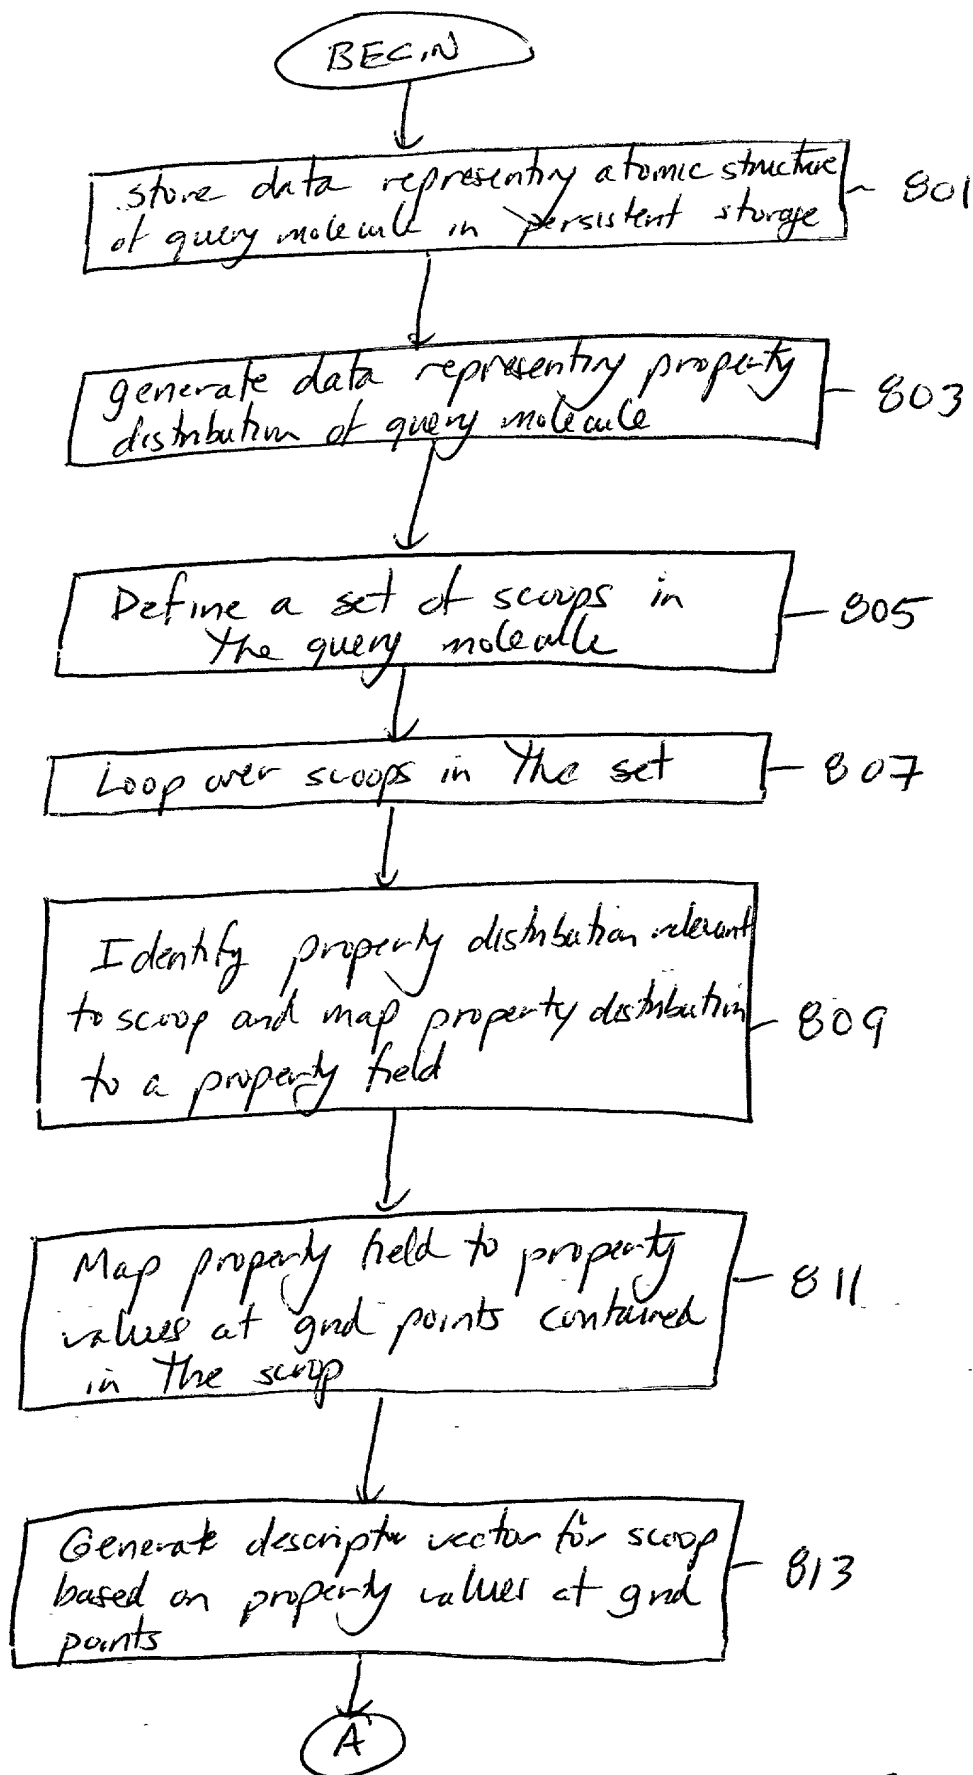 BEGIN
store data representing atomic structure
of query molecule in persistent storage
801
generate data representing property
distribution of query molecule
803
Define a set of scoops in
the query molecule
805
Loop over scoops in the set
807
Identify property distribution relevant
to scoop and map property distribution
to a property field
809
Map property field to property
values at grid points contained
in the scoop
811
Generate descriptor vector for scoop
based on property values at grid
points
813
A